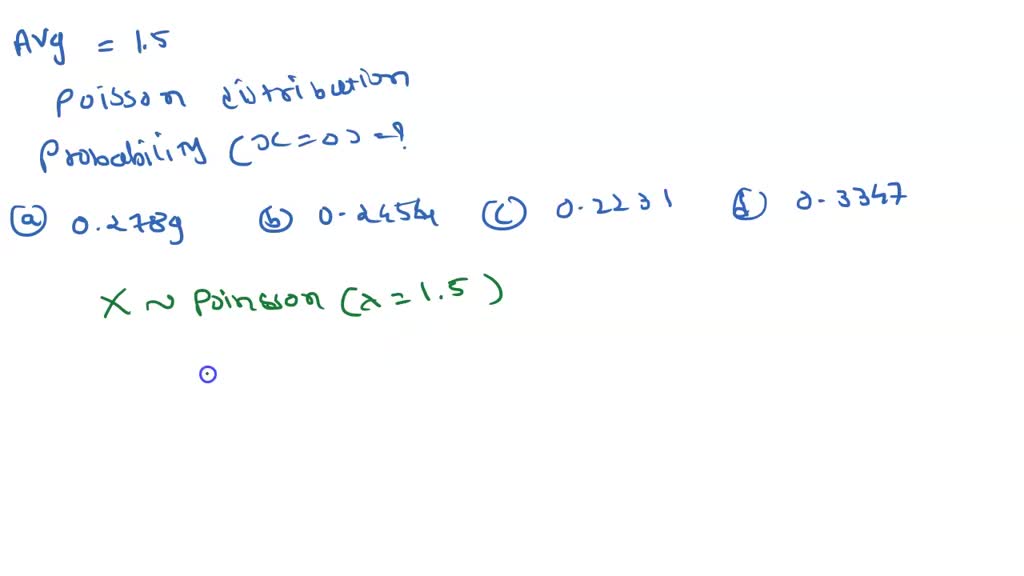 Avg = 1.5
Poisson distribution
Probability (x=0) = ?
(a) 0.2789 (b) 0.2454 (c) 0.2231 (d) 0.3347
X ~ Poinsson (λ = 1.5)